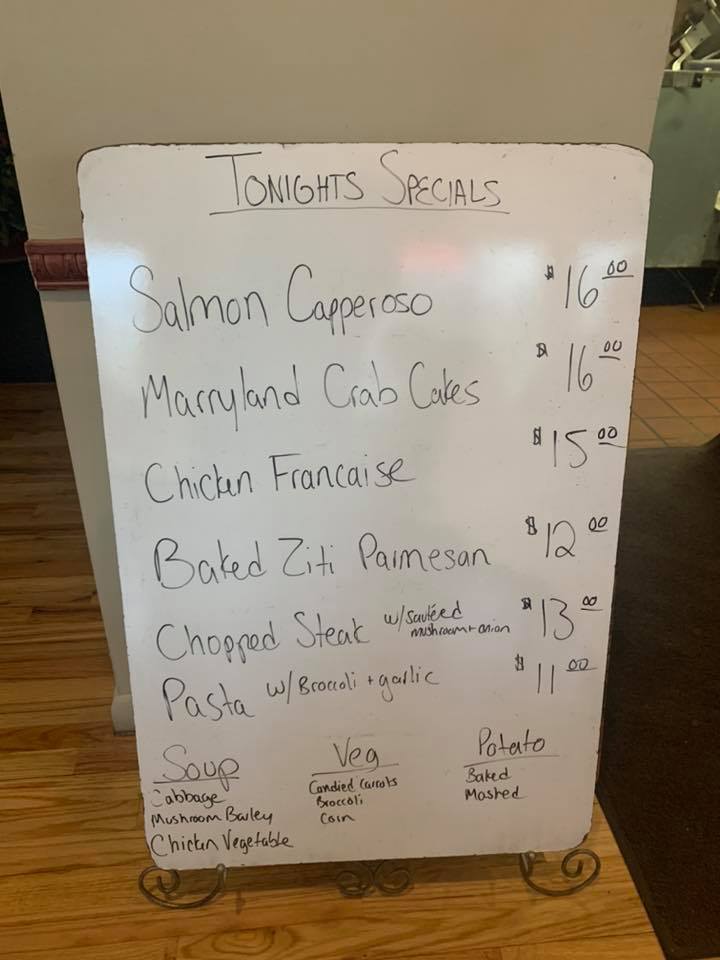 TONIGHTS SPECIALS
Salmon Capperoso $16.00
Marryland Crab Cakes $16.00
Chicken Francaise $15.00
Baked Ziti Parmesan $12.00
Chopped Steak w/ Sautéed mushroom + onion $13.00
Pasta w/ Broccoli + garlic $11.00
Soup
Cabbage
Mushroom Barley
Chicken Vegetable
Veg
Candied Carrots
Broccoli
Corn
Potato
Baked
Mashed